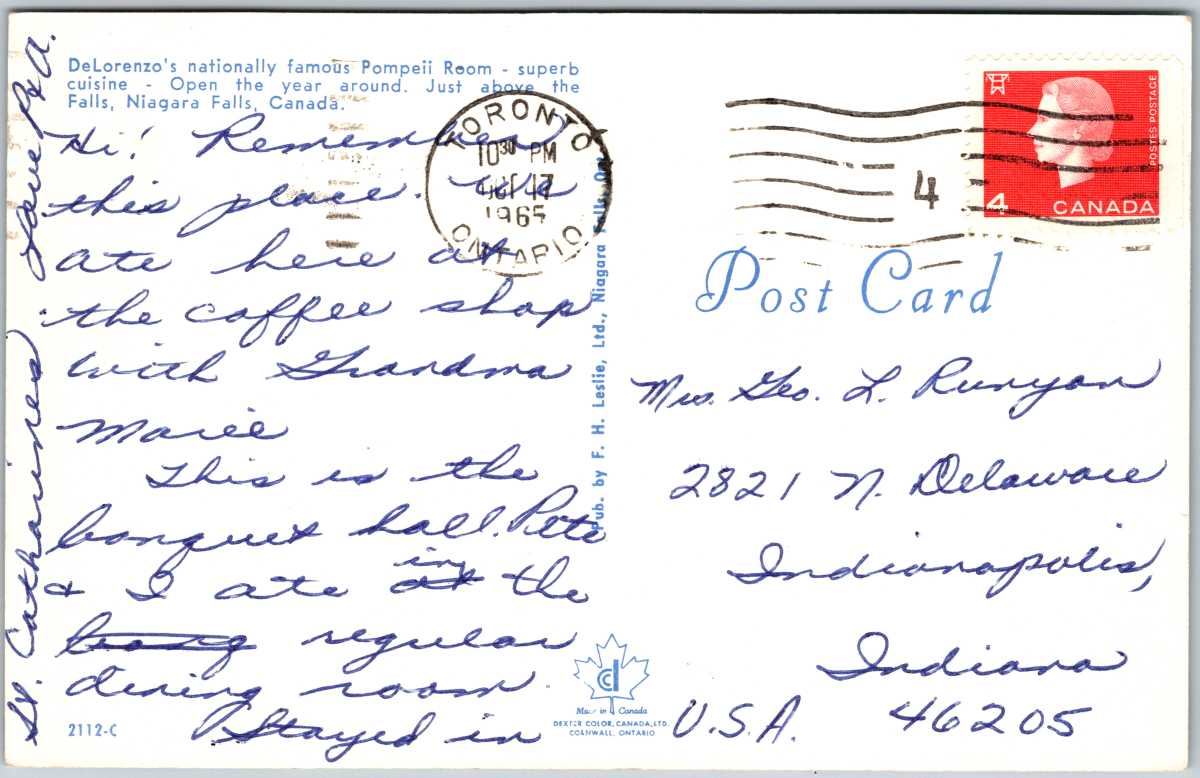 DeLorenzo's nationally famous Pompeii Room - superb
cuisine - Open the year around. Just above the
Falls, Niagara Falls, Canada.
Hi! Remember
this place. We
ate here at
the coffee shop
with Grandma
Marie
This is the
banquet hall. Pete
& I ate in the
regular
dining room.
Stayed in
St. Catharines
Love
2112-C
Pub. by F. H. Leslie, Ltd., Niagara Falls, Ont.
TORONTO
10 30 PM
17
1965
ONTARIO
4
POSTES POSTAGE
4 CANADA
Post Card
Mrs. Geo. L. Runyon
2821 N. Delaware
Indianapolis,
Indiana
U.S.A. 46205
Made in Canada
DEXTER COLOR, CANADA, LTD.
CORNWALL, ONTARIO